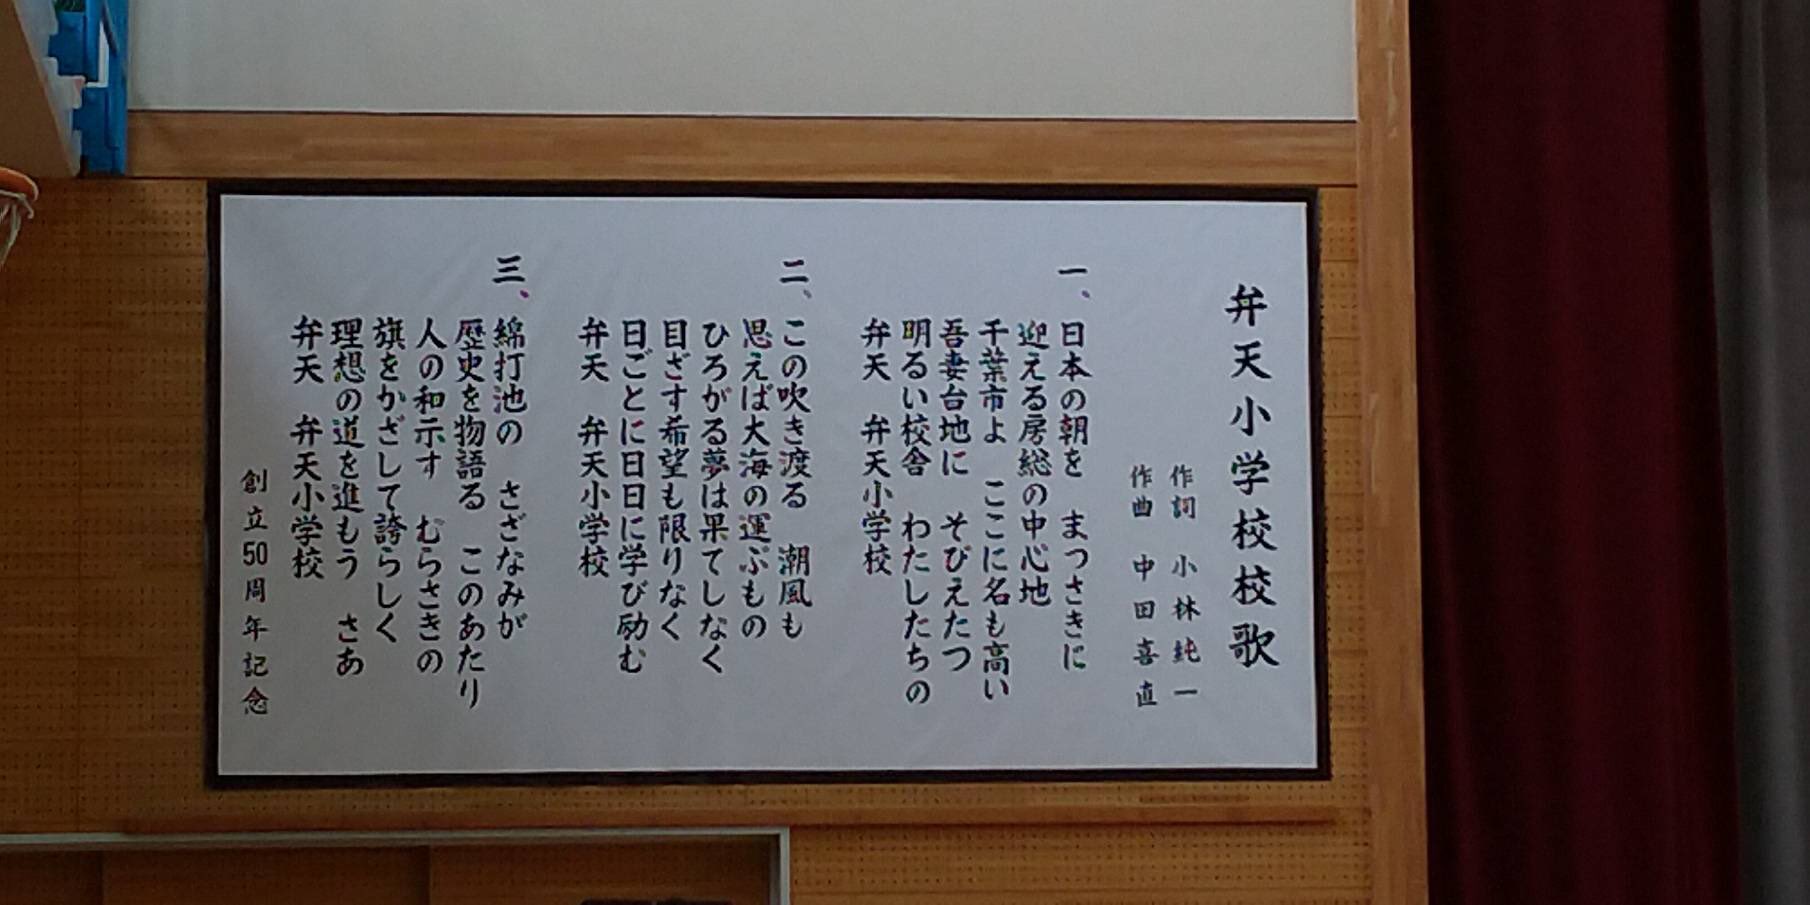 弁天小学校校歌
作詞 小林純一
作曲 中田喜直
一、日本の朝を まつさきに
迎える房総の中心地
千葉市よ ここに名も高い
吾妻台地に そびえたつ
明るい校舎 わたしたちの
弁天 弁天小学校
二、この吹き渡る 潮風も
思えば大海の運ぶもの
ひろがる夢は果てしなく
目ざす希望も限りなく
日ごとに日日に学び励む
弁天 弁天小学校
三、綿打池の さざなみが
歴史を物語る このあたり
人の和示す むらさきの
旗をかざして誇らしく
理想の道を進もう さあ
弁天 弁天小学校
創立50周年記念